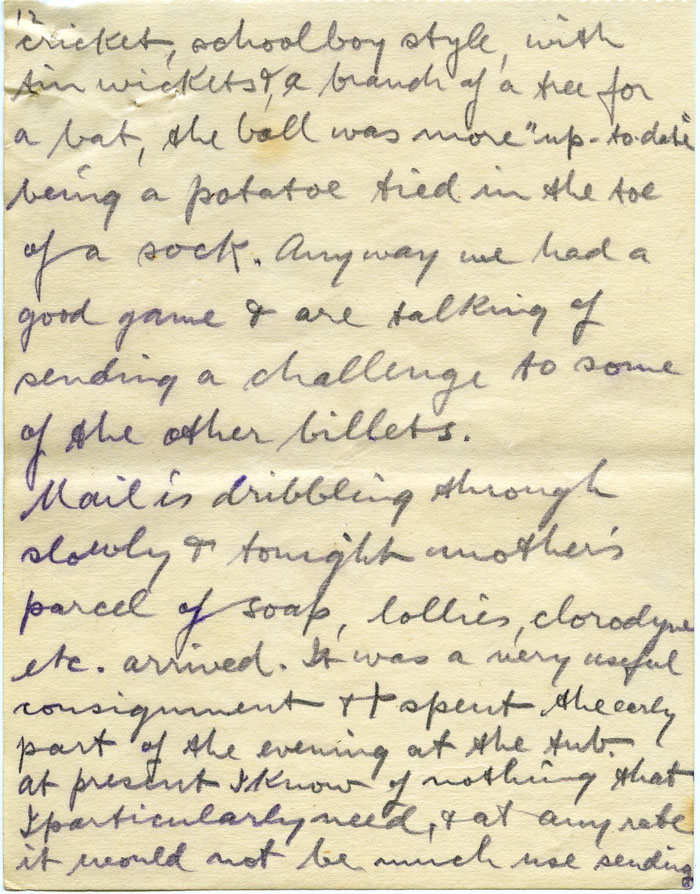 12
cricket, schoolboy style, with
tin wickets & a branch of a tree for
a bat, the ball was more "up-to-date"
being a potatoe tied in the toe
of a sock. Anyway we had a
good game & are talking of
sending a challenge to some
of the other billets.
Mail is dribbling through
slowly & tonight mother's
parcel of soap, lollies, clorodyne
etc. arrived. It was a very useful
consignment & I spent the early
part of the evening at the tub.
at present I know of nothing that
I particularly need, & at any rate
it would not be much use sending